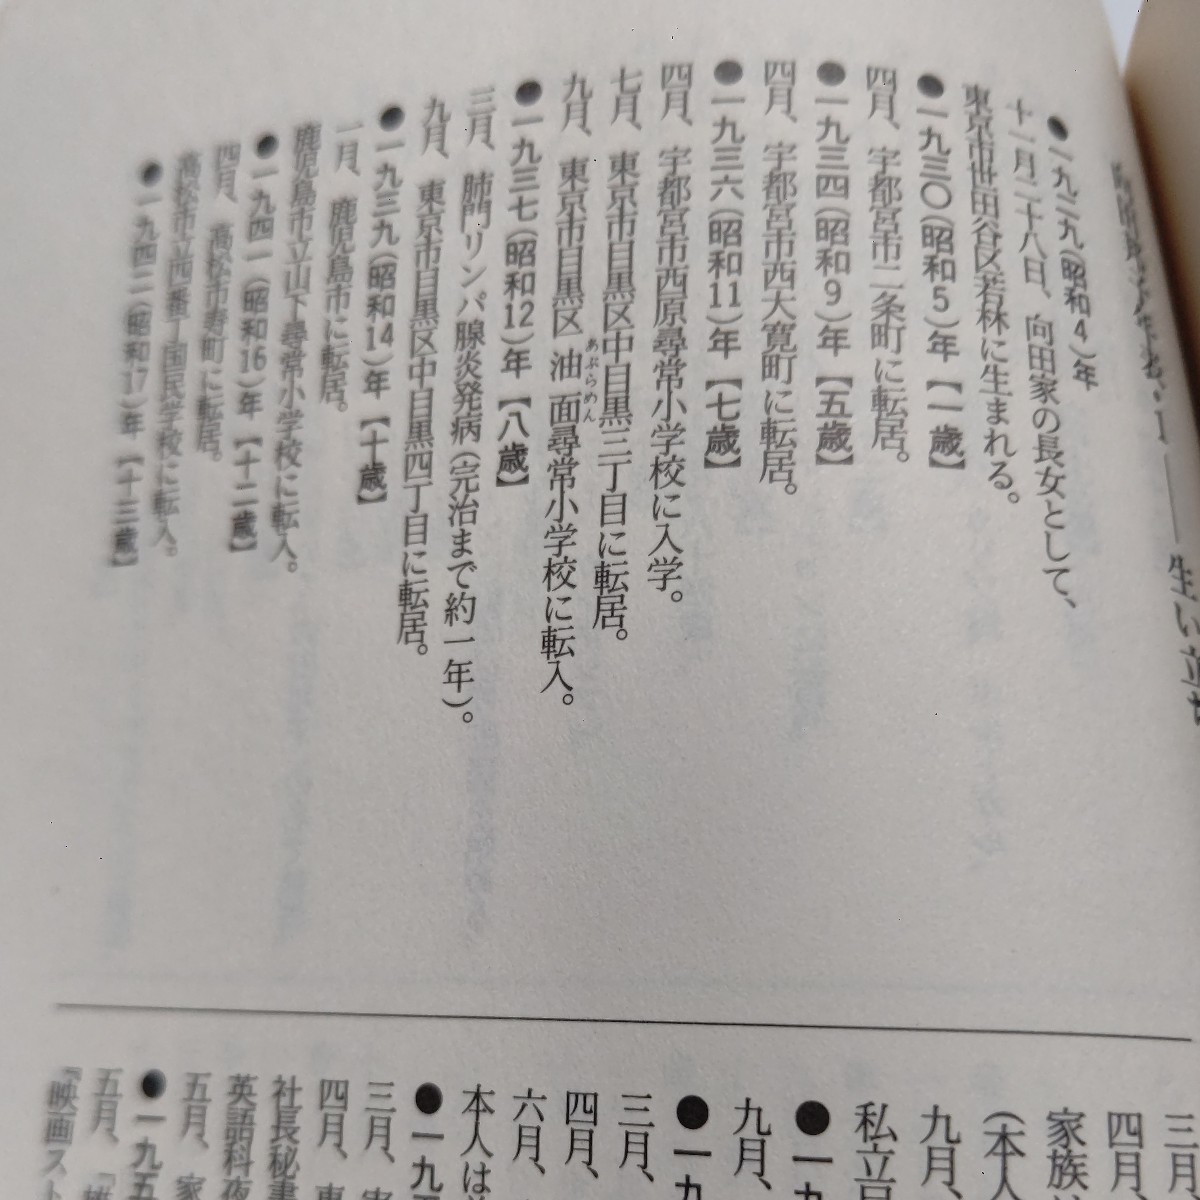 生い立ち
●一九二九(昭和4)年
十一月二十八日、向田家の長女として、
東京市世田谷区若林に生まれる。
●一九三〇(昭和5)年【一歳】
四月、宇都宮市二条町に転居。
●一九三四(昭和9)年【五歳】
四月、宇都宮市西大寛町に転居。
●一九三六(昭和11)年【七歳】
四月、宇都宮市西原尋常小学校に入学。
七月、東京市目黒区中目黒三丁目に転居。
九月、東京市目黒区油面尋常小学校に転入。
あぶらめん
●一九三七(昭和12)年【八歳】
三月、肺門リンパ腺炎発病(完治まで約一年)。
九月、東京市目黒区中目黒四丁目に転居。
●一九三九(昭和14)年【十歳】
一月、鹿児島市に転居。
鹿児島市立山下尋常小学校に転入。
●一九四一(昭和16)年【十二歳】
四月、高松市寿町に転居。
高松市立四番丁国民学校に転入。
●一九四二(昭和17)年【十三歳】
三月、
四月
家族
(本人
九月、
私立
●一九
九月、
●一九
三月、
四月、
六月、
本人は
●一九
三月、
四月、東
社長秘書
英語科夜
五月、家
●一九五
五月、「
『映画スト